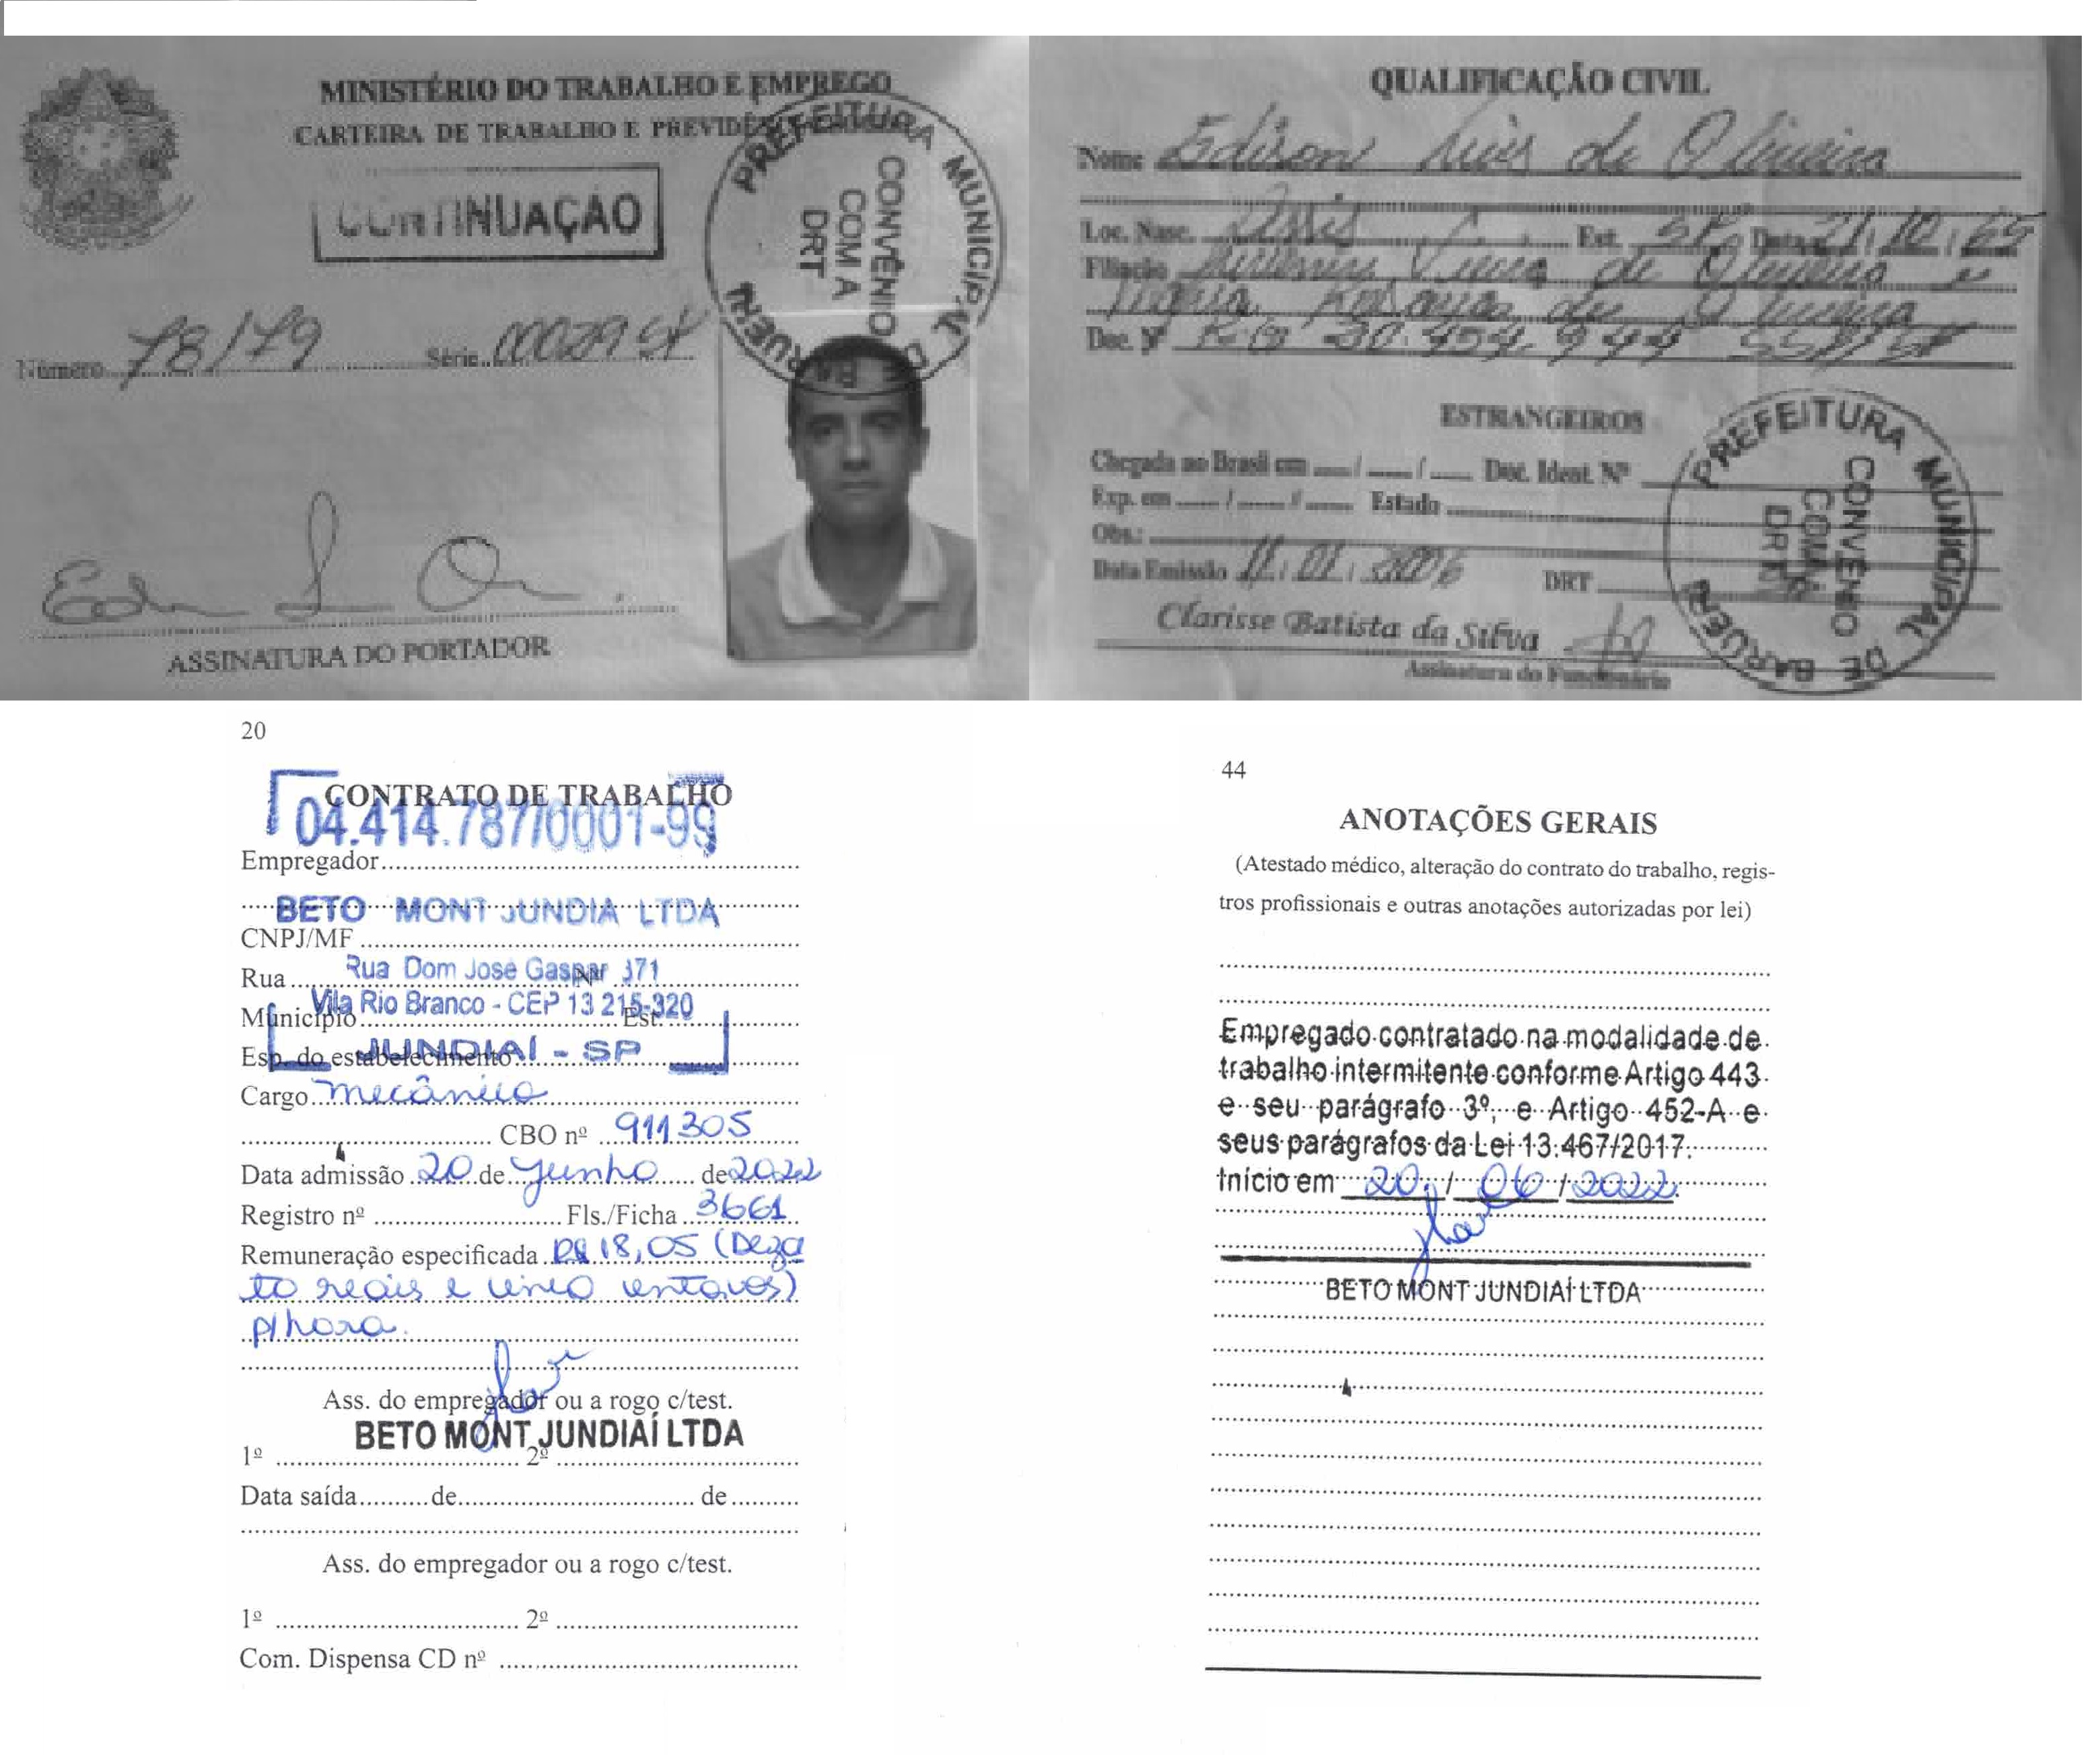 MINISTÉRIO DO TRABALHO E EMPREGO
CARTEIRA DE TRABALHO E
CONTINUAÇÃO
PREFEITURA MUNICIPAL DE BARUERI
CONVÊNIO
COM A
DRT
Número 78/79 Série 00029 SP
ASSINATURA DO PORTADOR
QUALIFICAÇÃO CIVIL
Nome Edison Luis de Oliveira
Loc. Nasc. Assis Est. SP Data 21.10.69
Filiação Vieira de Oliveira e
Maria de Oliveira
Doc. Nº RG 20.454.944 SSP/SP
ESTRANGEIROS
Chegada no Brasil em / / Doc. Ident. Nº
Exp. em / / Estado
Obs.:
Data Emissão 11.01.2006 DRT
Clarisse Batista da Silva
Assinatura do Funcionário
PREFEITURA MUNICIPAL DE BARUERI
CONVÊNIO
COM A
DRT
20
CONTRATO DE TRABALHO
04.414.787/0001-99
Empregador
BETO MONT JUNDIA LTDA
CNPJ/MF
Rua Rua Dom José Gaspar 371
Vila Rio Branco - CEP 13 215-320
Município Est.
Esp. do estabelecimento JUNDIAÍ - SP
Cargo mecânico
CBO nº 911305
Data admissão 20 de junho de 2022
Registro nº Fls./Ficha 3661
Remuneração especificada R$ 18,05 (Dezoi
to reais e cinco centavos)
p/hora.
Ass. do empregador ou a rogo c/test.
BETO MONT JUNDIAÍ LTDA
1º 2º
Data saída de de
Ass. do empregador ou a rogo c/test.
1º 2º
Com. Dispensa CD nº
44
ANOTAÇÕES GERAIS
(Atestado médico, alteração do contrato do trabalho, regis-
tros profissionais e outras anotações autorizadas por lei)
Empregado contratado na modalidade de
trabalho intermitente conforme Artigo 443
e seu parágrafo 3º, e Artigo 452-A e
seus parágrafos da Lei 13.467/2017.
Início em 20 / 06 / 2022
BETO MONT JUNDIAÍ LTDA